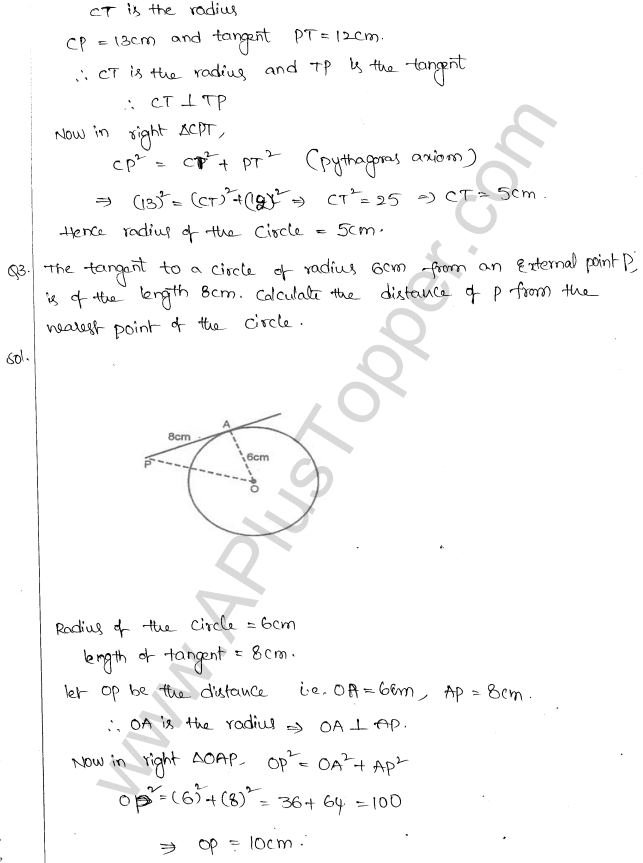 CT is the radius
CP = 13cm and tangent PT = 12cm.
∴ CT is the radius and TP is the tangent
∴ CT ⊥ TP
Now in right ΔCPT,
CP² = CT² + PT² (pythagoras axiom)
⇒ (13)² = (CT)² + (12)² ⇒ CT² = 25 ⇒ CT = 5cm.
Hence radius of the circle = 5cm.
Q3. The tangent to a circle of radius 6cm from an External point P,
is of the length 8cm. Calculate the distance of P from the
nearest point of the circle.
Sol.
A
8cm
P
6cm
O
Radius of the circle = 6cm
length of tangent = 8cm.
let OP be the distance i.e. OA = 6cm, AP = 8cm.
∴ OA is the radius ⇒ OA ⊥ AP.
Now in right ΔOAP, OP² = OA² + AP²
OP² = (6)² + (8)² = 36 + 64 = 100
⇒ OP = 10cm.
www.APlusTopper.com